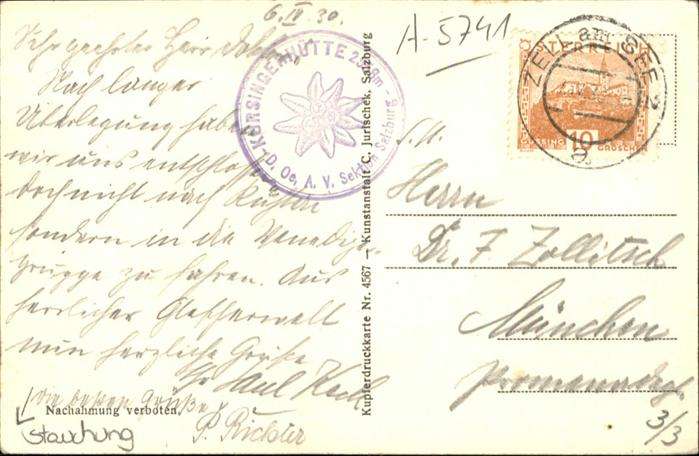 6. IV. 30.
Sehr geehrter Herr Doktor,
Nach langer
Überlegung haben
wir uns entschlossen
doch nicht nach
sondern in die Venediger-
gruppe zu fahren. Aus
herrlicher Gletscherwelt
nun herzliche Grüße
Ihr Paul
die besten Grüße
P. Richter
Nachahmung verboten.
Stauchung
KÜRSINGERHÜTTE 25 m
D. Oe. A. V. Sektion Salzburg
Kupferdruckkarte Nr. 4567 — Kunstanstalt C. Jurischek, Salzburg
A-5741
ZELL am SEE
ÖSTERREICH
10 GROSCHEN
Herrn
Dr. F. Zollitsch
München
3/3